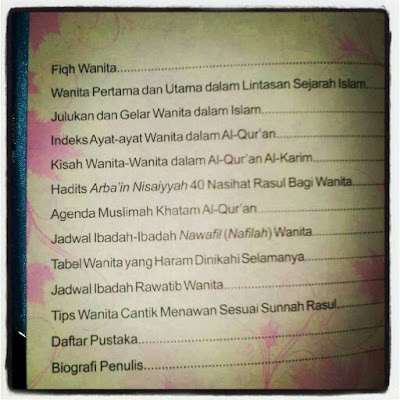 Fiqh Wanita
Wanita Pertama dan Utama dalam Lintasan Sejarah Islam
Julukan dan Gelar Wanita dalam Islam
Indeks Ayat-ayat Wanita dalam Al-Qur'an
Kisah Wanita-Wanita dalam Al-Qur'an Al-Karim
Hadits Arba'in Nisaiyyah 40 Nasihat Rasul Bagi Wanita
Agenda Muslimah Khatam Al-Qur'an
Jadwal Ibadah-Ibadah Nawafil (Nafilah) Wanita
Tabel Wanita yang Haram Dinikahi Selamanya
Jadwal Ibadah Rawatib Wanita
Tips Wanita Cantik Menawan Sesuai Sunnah Rasul
Daftar Pustaka
Biografi Penulis